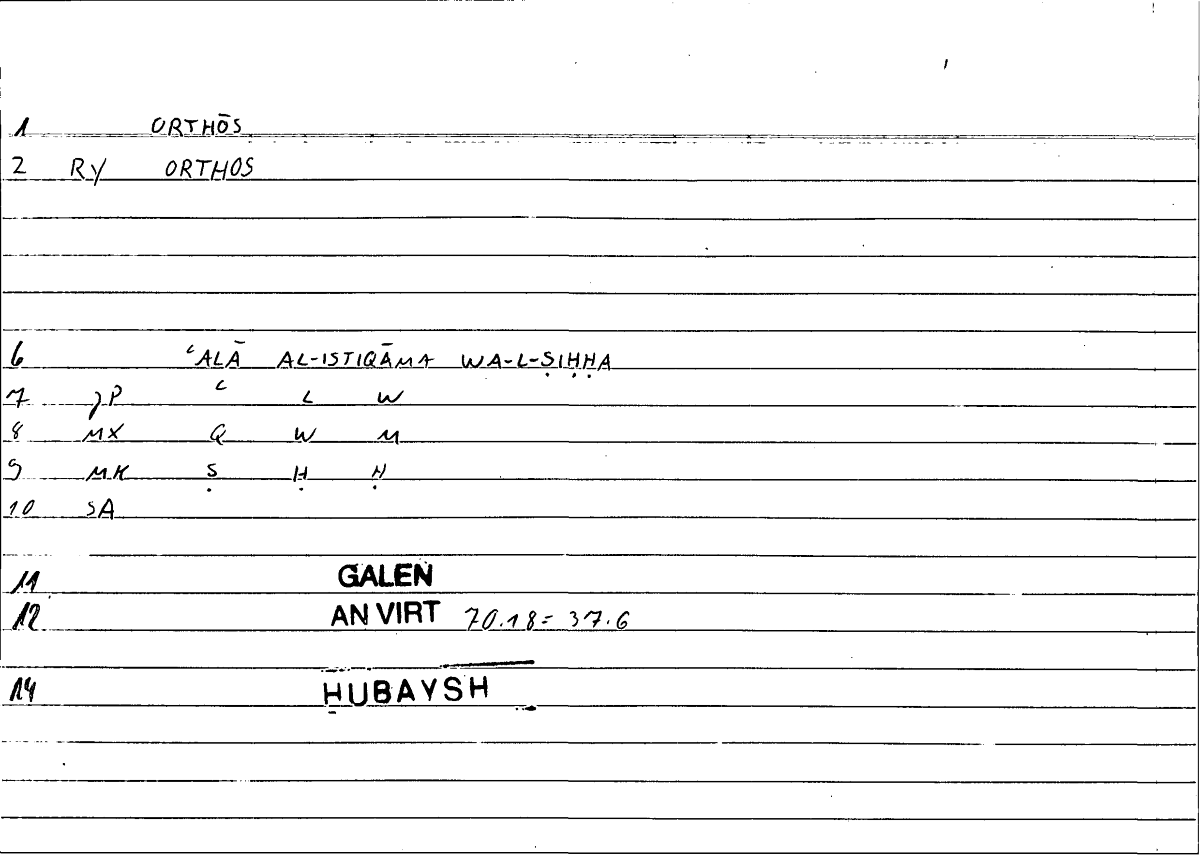 1 ORTHŌS
2 Ry ORTHOS
6 ʿALĀ AL-ISTIQĀMA WA-L-ṢIḤḤA
7 JP ʿ L W
8 MX Q W M
9 MK Ṣ Ḥ Ḥ
10 SA
11 GALEN
12 AN VIRT 70.18= 37.6
14 ḤUBAYSH